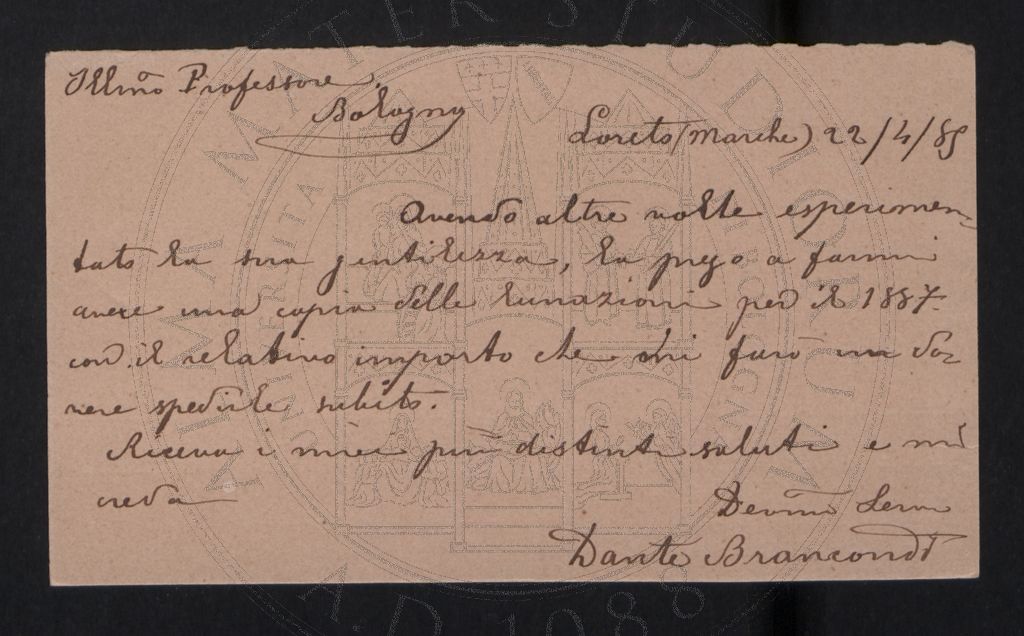 Illmo Professore,
Bologna
Loreto (Marche) 22/4/85
Avendo altre volte esperimen-
tato la sua gentilezza, la prego a farmi
avere una copia delle lunazioni per il 1887.
con il relativo importo che mi farò un do-
vere spedirle subito.
Riceva i miei più distinti saluti e mi
creda
Devmo Servo
Dante Brancondi
ALMA MATER STUDIORUM
A.D. 1088